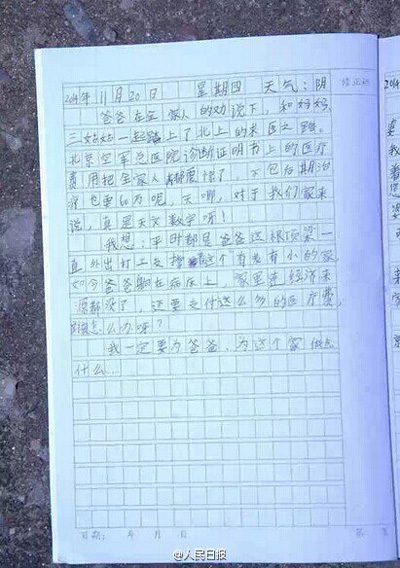 2014年 11月 20日 星期四 天气：阴
爸爸在全家人的劝说下，和妈妈
三姑姑一起踏上了北上的求医之路。
北京空军总医院诊断证明书上的医疗
费用把全家人都震惊了，下包后期治
疗也要60万呢，天哪，对于我们家来
说，真是天文数字呀！
我想：平时都是爸爸这根顶梁一
直外出打工支撑着这个有老有小的家，
如今爸爸躺在病床上，家里连经济来
源都没了，还要支付这么多的医疗费，
该怎么办呀？
我一定要为爸爸，为这个家做点
什么.
日期： 年 月 日
第 页
2014
@人民日报